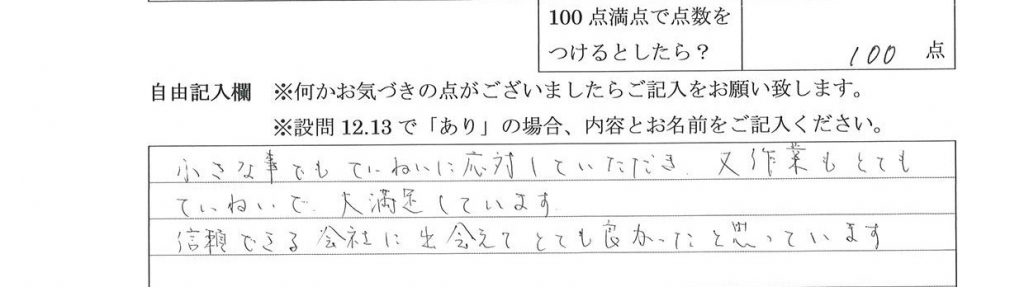 100 点満点で点数を
つけるとしたら？
100 点
自由記入欄 ※何かお気づきの点がございましたらご記入をお願い致します。
※設問 12.13 で「あり」の場合、内容とお名前をご記入ください。
小さな事でもていねいに応対していただき、又作業もとても
ていねいで、大満足しています
信頼できる会社に出会えてとても良かったと思っています